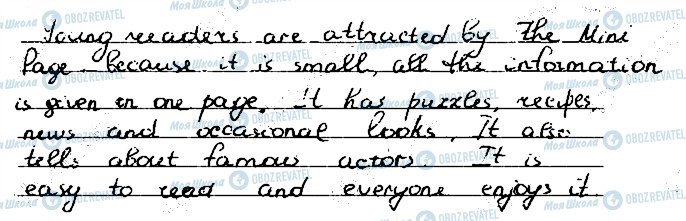 Young readers are attracted by The Mini
Page because it is small, all the information
is given in one page. It has puzzles, recipes,
news and occasional looks. It also
tells about famous actors. It is
easy to read and everyone enjoys it.